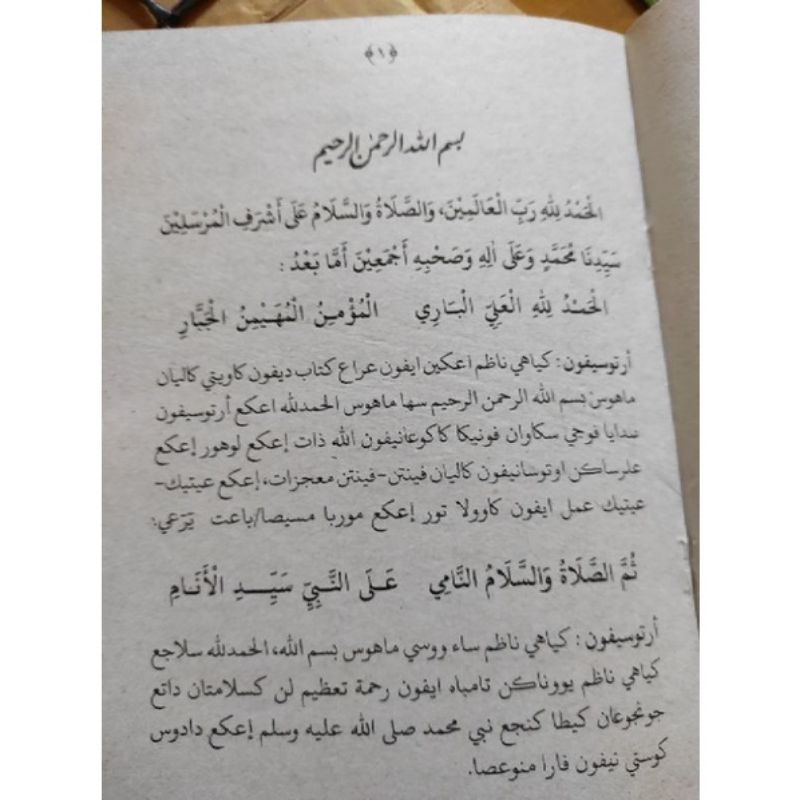 ﴿١﴾
بسم الله الرحمن الرحيم
الْحَمْدُ لِلّٰهِ رَبِّ الْعَالَمِيْنَ، وَالصَّلَاةُ وَالسَّلَامُ عَلَى أَشْرَفِ الْمُرْسَلِيْنَ
سَيِّدِنَا مُحَمَّدٍ وَعَلَى اٰلِهِ وَصَحْبِهِ أَجْمَعِيْنَ أَمَّا بَعْدُ :
الْحَمْدُ لِلّٰهِ الْعَلِيِّ الْبَارِي الْمُؤْمِنُ الْمُهَيْمِنُ الْجَبَّارِ
أرتوسيفون : كياهي ناظم اعكين ايفون عراع كتاب ديفون كاويتي كاليان
ماهوس بسم الله الرحمن الرحيم سها ماهوس الحمدلله اعكع أرتوسيفون
سدايا فوجي سكاوان فونيكا كاكوعانيفون الله ذات إعكع لوهور إعكع
علرساكن اوتوسانيفون كاليان فينتن-فينتن معجزات، إعكع عيتيك-
عيتيك عمل ايفون كاوولا تور إعكع موربا مسيصا/باعت يَرَعي:
ثُمَّ الصَّلَاةُ وَالسَّلَامُ النَّامِي عَلَى النَّبِيِّ سَيِّدِ الْأَنَامِ
أرتوسيفون : كياهي ناظم ساء ووسي ماهوس بسم الله، الحمدلله سلاجع
كياهي ناظم يووناكن تامباه ايفون رحمة تعظيم لن كسلامتان داتع
جونجوعان كيطا كنجع نبي محمد صلى الله عليه وسلم إعكع دادوس
كوستي نيفون فارا منوعصا.